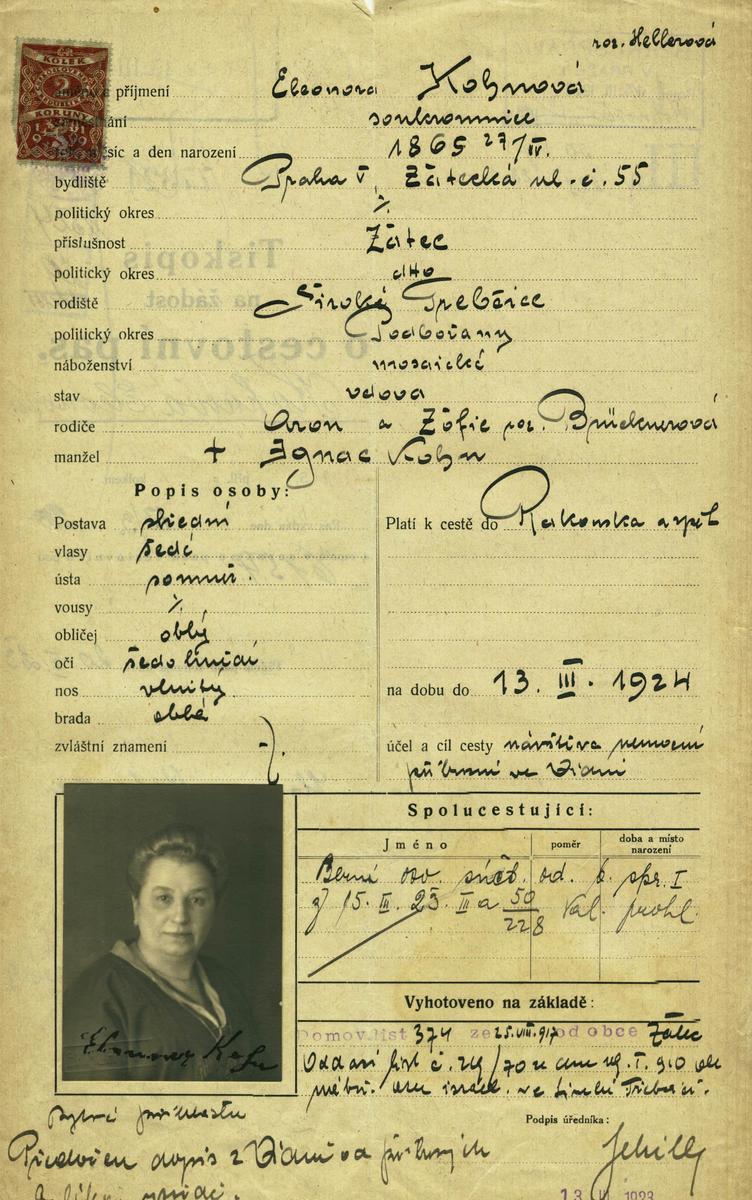 roz. Hellerová
KOLEK
KORUNY
jméno a příjmení Eleonora Kohnová
zaměstnání soukromnice
rok, měsíc a den narození 1865 27/IV.
bydliště Praha V, Žatecká ul. č. 55
politický okres ./.
příslušnost Žatec
politický okres dtto
rodiště Široké Třebčice
politický okres Podbořany
náboženství mosaické
stav vdova
rodiče Aron a Žófie roz. Brücknerová
manžel + Ignac Kohn
Popis osoby:
Postava střední
vlasy šedé
ústa souměr.
vousy ./.
obličej oblý
oči šedohnědé
nos vlnitý
brada oblá
zvláštní znamení ./.
Platí k cestě do Rakouska a zpět
na dobu do 13. III. 1924
účel a cíl cesty návštěva nemocné
příbuzné ve Vídni
Spolucestující:
Jméno poměr doba a místo narození
Berní osv. od. b. spr. I
z 15. III. 23. III a 50/228
Vyhotoveno na základě:
Domov. list 374 ze 25.VIII.917 od obce Žatec
Oddací list č.
Eleonora Kohn
Podpis úředníka:
Předložen dopis z Vídně od příbuzných
13. 1923